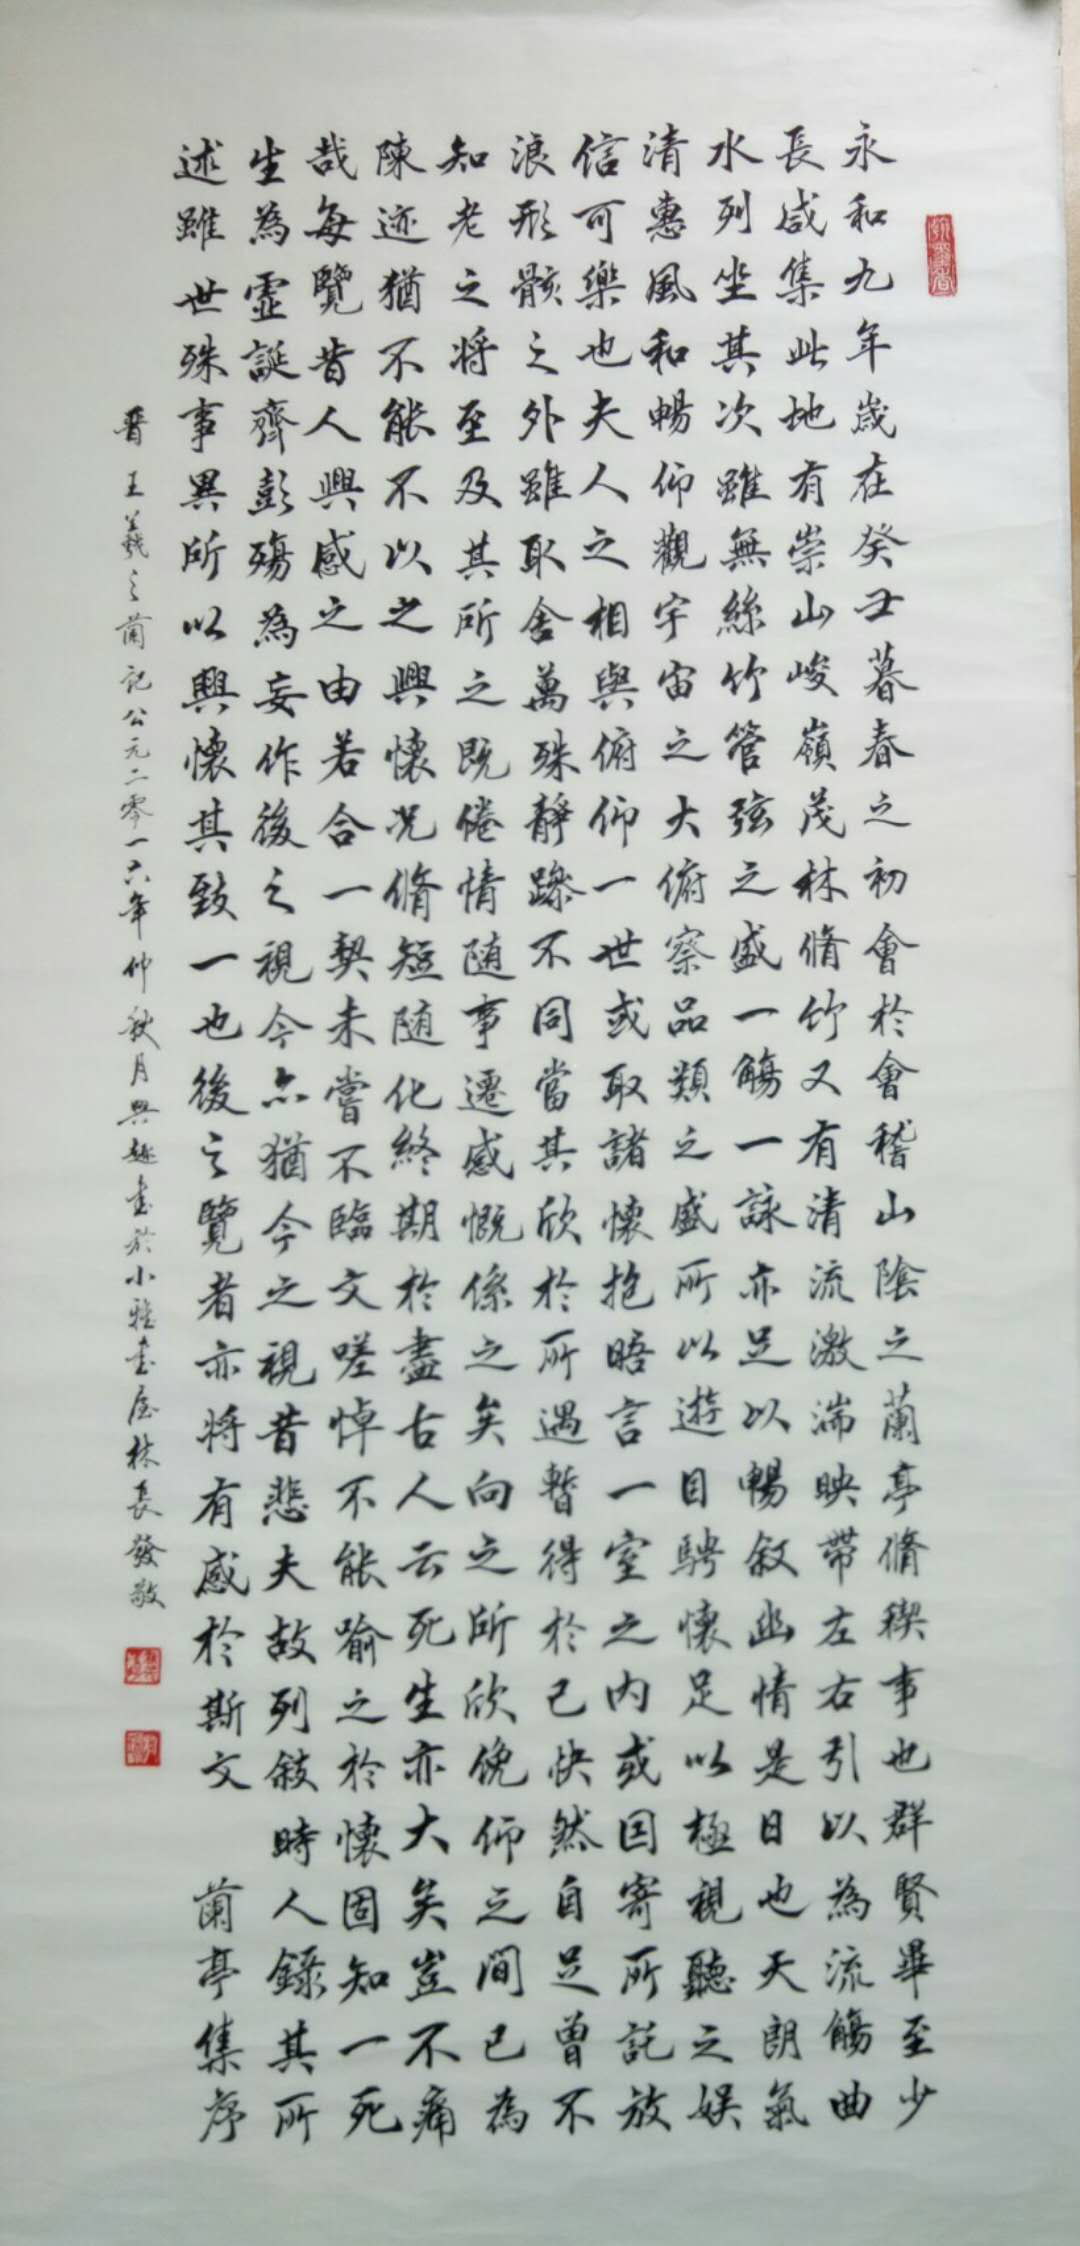 永和九年歲在癸丑暮春之初會於會稽山陰之蘭亭脩稧事也群賢畢至少
長咸集此地有崇山峻嶺茂林脩竹又有清流激湍映帶左右引以為流觴曲
水列坐其次雖無絲竹管弦之盛一觴一詠亦足以暢敘幽情是日也天朗氣
清惠風和暢仰觀宇宙之大俯察品類之盛所以遊目騁懷足以極視聽之娛
信可樂也夫人之相與俯仰一世或取諸懷抱晤言一室之內或因寄所託放
浪形骸之外雖取舍萬殊靜躁不同當其欣於所遇暫得於己快然自足曾不
知老之將至及其所之既倦情随事遷感慨係之矣向之所欣俛仰之間已為
陳迹猶不能不以之興懷況脩短随化終期於盡古人云死生亦大矣豈不痛
哉每覽昔人興感之由若合一契未嘗不臨文嗟悼不能喻之於懷固知一死
生為虛誕齊彭殤為妄作後之視今亦猶今之視昔悲夫故列敘時人錄其所
述雖世殊事異所以興懷其致一也後之覽者亦將有感於斯文 蘭亭集序
晉王羲之蘭記公元二零一六年仲秋月興趣書於小雅書屋林長發敬